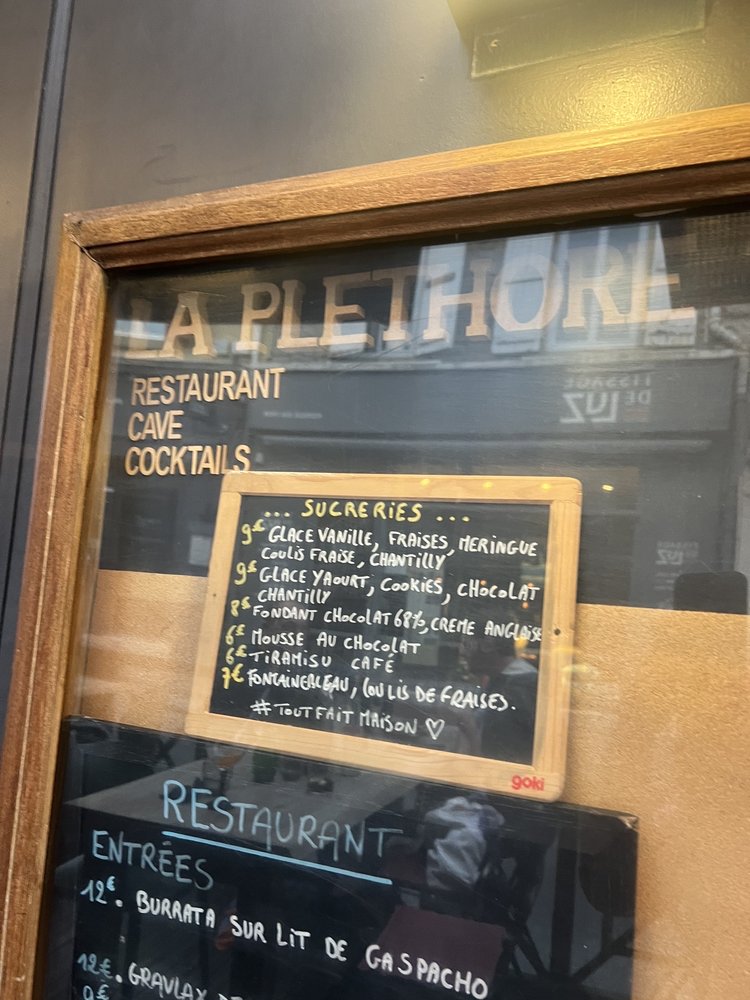 LA PLETHORE
RESTAURANT
CAVE
COCKTAILS
... SUCRERIES ...
9€ GLACE VANILLE, FRAISES, MERINGUE
COULIS FRAISE, CHANTILLY
9€ GLACE YAOURT, COOKIES, CHOCOLAT
CHANTILLY
8€ FONDANT CHOCOLAT 68%, CREME ANGLAISE
6€ MOUSSE AU CHOCOLAT
6€ TIRAMISU CAFÉ
7€ FONTAINEBLEAU, COULIS DE FRAISES.
# TOUT FAIT MAISON ♡
goki
RESTAURANT
ENTRÉES
12€. BURRATA SUR LIT DE GASPACHO
12€. GRAVLAX
9€
TISSAGE
DE LUZ